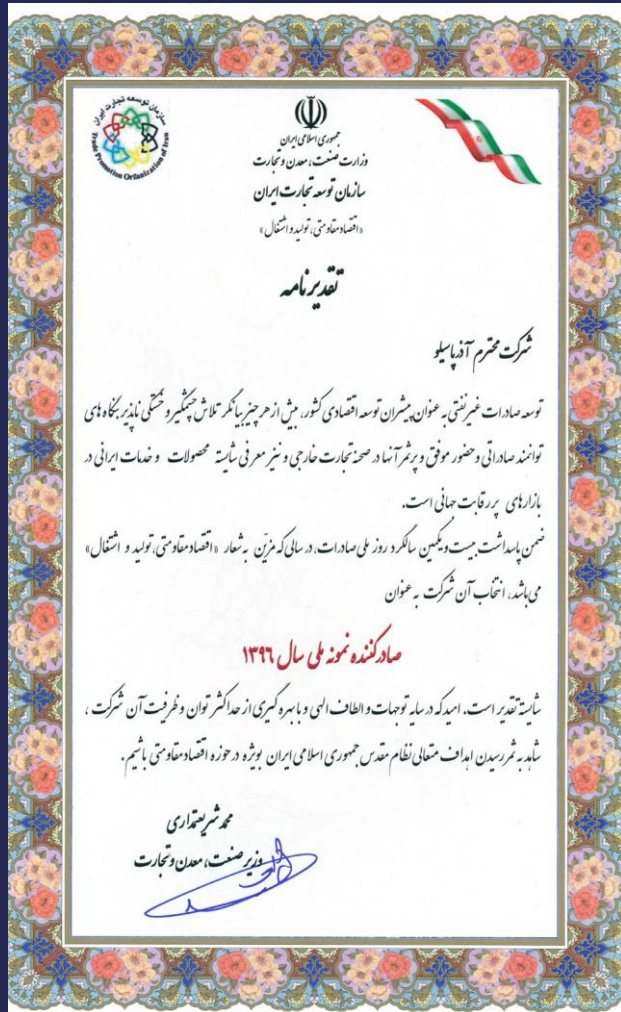 سازمان توسعه تجارت ایران
Trade Promotion Organization of Iran
جمهوری اسلامی ایران
وزارت صنعت، معدن و تجارت
سازمان توسعه تجارت ایران
«اقتصاد مقاومتی، تولید و اشتغال»
تقدیرنامه
شرکت محترم آذرپاسیلو
توسعه صادرات غیرنفتی به عنوان پیشران توسعه اقتصادی کشور، بیش از هر چیز بیانگر تلاش چشمگیر و خستگی ناپذیر بنگاه های
توانمند صادراتی و حضور موفق و پرثمر آنها در صحنه تجارت خارجی و نیز معرفی شایسته محصولات و خدمات ایرانی در
بازارهای پررقابت جهانی است.
ضمن پاسداشت بیست و یکمین سالگرد روز ملی صادرات، در سالی که مزین به شعار «اقتصاد مقاومتی، تولید و اشتغال»
می باشد، انتخاب آن شرکت به عنوان
صادرکننده نمونه ملی سال ۱۳۹۶
شایسته تقدیر است. امید که در سایه توجهات و الطاف الهی و با بهره گیری از حداکثر توان و ظرفیت آن شرکت،
شاهد به ثمر رسیدن اهداف متعالی نظام مقدس جمهوری اسلامی ایران بویژه در حوزه اقتصاد مقاومتی باشیم.
محمد شریعتمداری
وزیر صنعت، معدن و تجارت